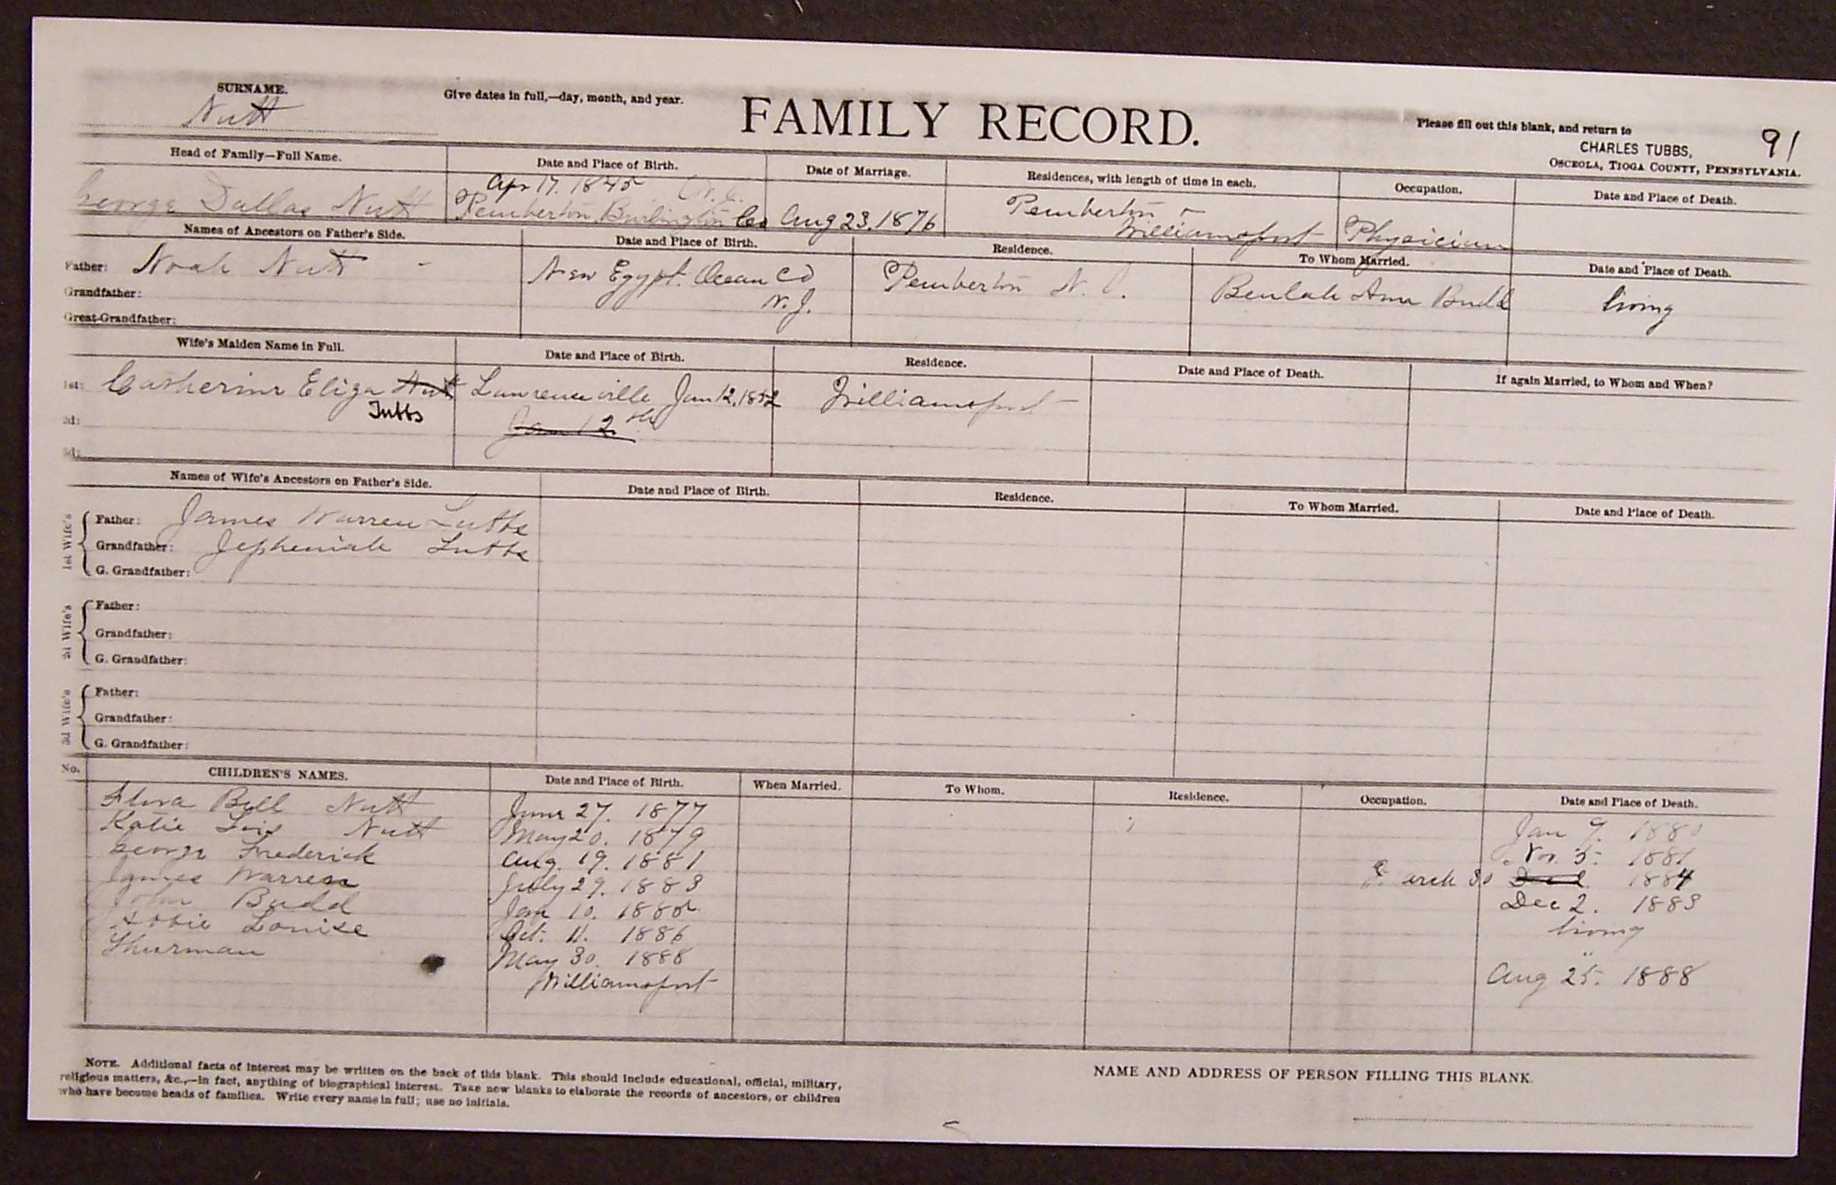 SURNAME.
Nutt
Give dates in full,—day, month, and year.
FAMILY RECORD.
Please fill out this blank, and return to
CHARLES TUBBS,
OSCEOLA, TIOGA COUNTY, PENNSYLVANIA.
91
Head of Family—Full Name.
Date and Place of Birth.
Date of Marriage.
Residences, with length of time in each.
Occupation.
Date and Place of Death.
George Dallas Nutt
Apr 17. 1845 N.J.
Pemberton, Burlington Co
Aug 23, 1876
Pemberton
Williamsport
Physician
Names of Ancestors on Father's Side.
Date and Place of Birth.
Residence.
To Whom Married.
Date and Place of Death.
Father: Noah Nutt
New Egypt. Ocean Co
N.J.
Pemberton N. J.
Beulah Ann Budd
living
Grandfather:
Great-Grandfather:
Wife's Maiden Name in Full.
Date and Place of Birth.
Residence.
Date and Place of Death.
If again Married, to Whom and When?
1st: Catherine Eliza Nutt
Tubbs
Lawrenceville Jan 12, 1852
Jan 12th
Williamsport
2d:
3d:
Names of Wife's Ancestors on Father's Side.
Date and Place of Birth.
Residence.
To Whom Married.
Date and Place of Death.
1st Wife's
Father: James Warren Tubbs
Grandfather: Tubbs
G. Grandfather:
2d Wife's
Father:
Grandfather:
G. Grandfather:
3d Wife's
Father:
Grandfather:
G. Grandfather:
No.
CHILDREN'S NAMES.
Date and Place of Birth.
When Married.
To Whom.
Residence.
Occupation.
Date and Place of Death.
Flora Bell Nutt June 27. 1877 Jan 9. 1880
Katie Lois Nutt May 20. 1879 Nov. 5. 1881
George Frederick Aug. 19. 1881 March 30 Dec 2 1884
James Warren July 29. 1883 Dec 2. 1883
John Budd Jan 10. 1885 living
Louise Oct. 11. 1886 "
Thurman May 30. 1888 Aug 25. 1888
Williamsport
NOTE. Additional facts of interest may be written on the back of this blank. This should include educational, official, military,
religious matters, &c.,—in fact, anything of biographical interest. Take new blanks to elaborate the records of ancestors, or children
who have become heads of families. Write every name in full; use no initials.
NAME AND ADDRESS OF PERSON FILLING THIS BLANK.